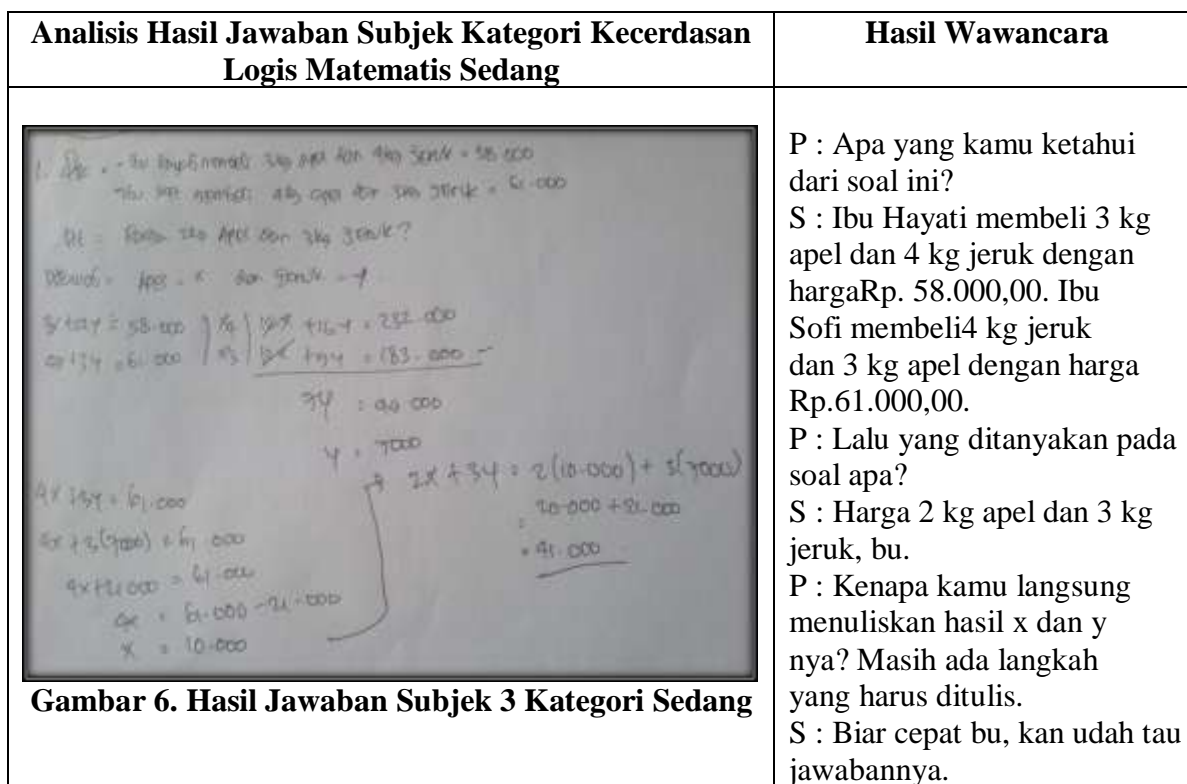 Analisis Hasil Jawaban Subjek Kategori Kecerdasan
Logis Matematis Sedang
1. Dik = Ibu 3kg apel dan 4kg Jeruk = 58.000
Ibu 4kg apel dan 3kg Jeruk = 61.000
Dit = 2kg Apel dan 3kg Jeruk?
Apel = x dan Jeruk = y
3x+4y = 58.000 | x4 | 12x + 16y = 232.000
4x+3y = 61.000 | x3 | 12x + 9y = 183.000 -
7y = 49.000
y = 7000
2x + 3y = 2(10.000) + 3(7000)
20.000 + 21.000
= 41.000
4x + 3y = 61.000
4x + 3(7000) = 61.000
4x + 21.000 = 61.000
4x = 61.000 - 21.000
x = 10.000
Gambar 6. Hasil Jawaban Subjek 3 Kategori Sedang
Hasil Wawancara
P : Apa yang kamu ketahui
dari soal ini?
S : Ibu Hayati membeli 3 kg
apel dan 4 kg jeruk dengan
hargaRp. 58.000,00. Ibu
Sofi membeli4 kg jeruk
dan 3 kg apel dengan harga
Rp.61.000,00.
P : Lalu yang ditanyakan pada
soal apa?
S : Harga 2 kg apel dan 3 kg
jeruk, bu.
P : Kenapa kamu langsung
menuliskan hasil x dan y
nya? Masih ada langkah
yang harus ditulis.
S : Biar cepat bu, kan udah tau
jawabannya.